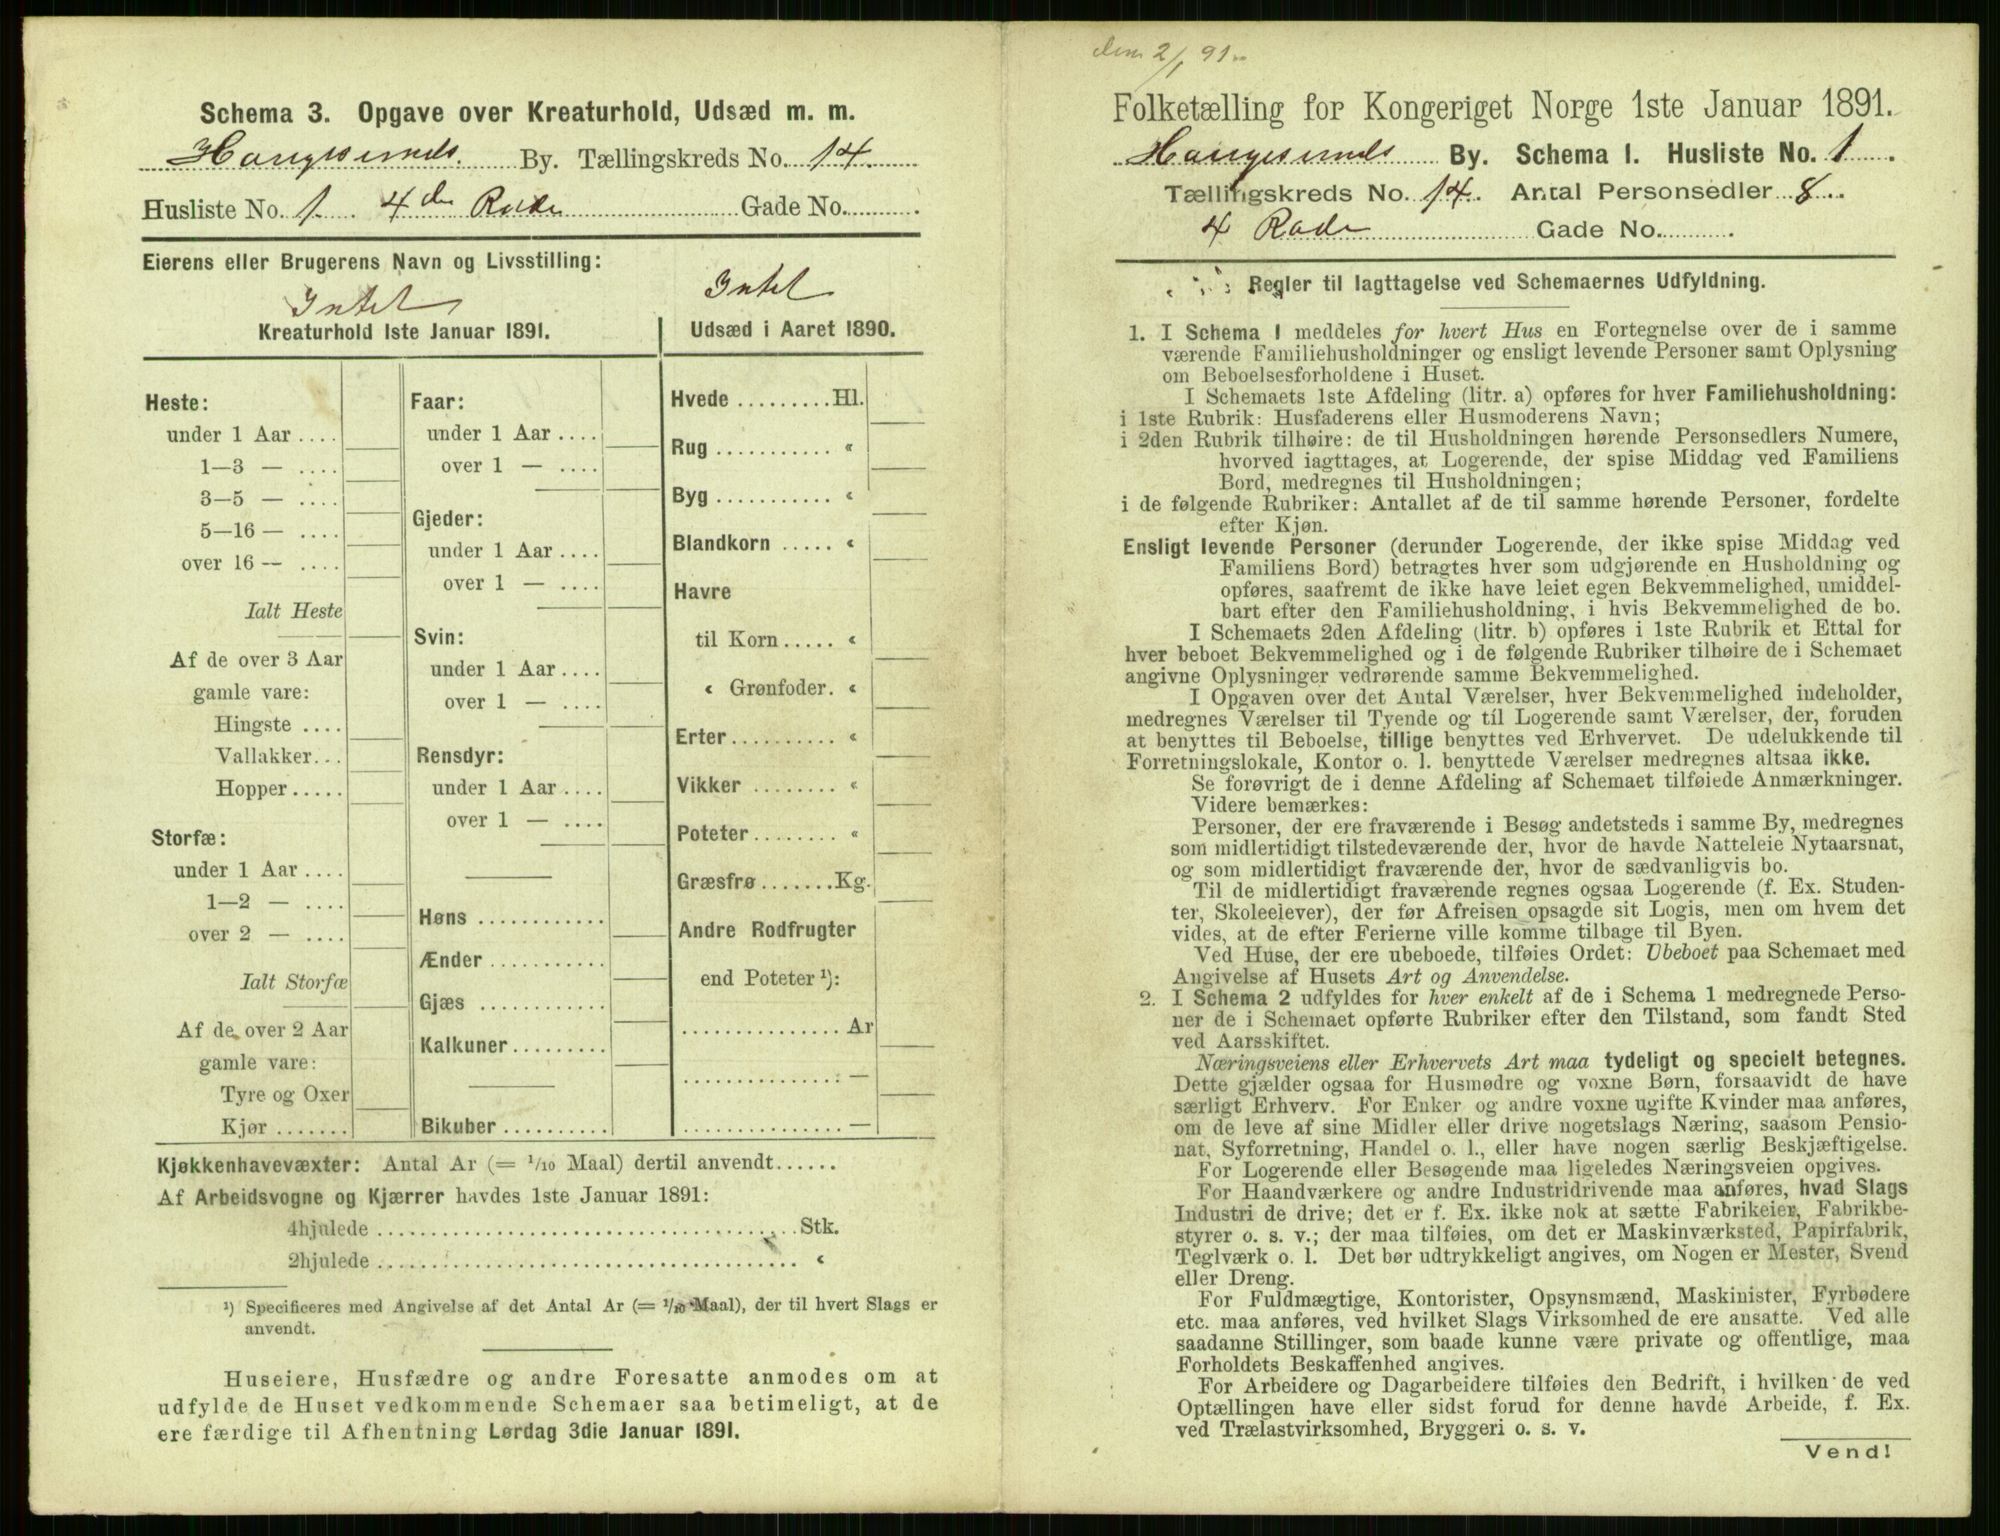 Schema 3. Opgave over Kreaturhold, Udsæd m. m.
Haugesunds By. Tællingskreds No. 14.
Husliste No. 1. 4de Rode Gade No.
Eierens eller Brugerens Navn og Livsstilling:
Intet
Intet
Kreaturhold 1ste Januar 1891.
Udsæd i Aaret 1890.
Heste:
under 1 Aar ....
1—3 — ....
3—5 — ....
5—16 — ....
over 16 — ....
Ialt Heste
Af de over 3 Aar
gamle vare:
Hingste ....
Vallakker...
Hopper.....
Storfæ:
under 1 Aar ....
1—2 — ....
over 2 — ....
Ialt Storfæ
Af de over 2 Aar
gamle vare:
Tyre og Oxer
Kjør .......
Faar:
under 1 Aar ....
over 1 — ....
Gjeder:
under 1 Aar ....
over 1 — ....
Svin:
under 1 Aar ....
over 1 — ....
Rensdyr:
under 1 Aar ....
over 1 — ....
Høns ............
Ænder ...........
Gjæs ............
Kalkuner .........
Bikuber ..........
Hvede .........Hl.
Rug ........... «
Byg ........... «
Blandkorn ..... «
Havre
til Korn ..... «
« Grønfoder. «
Erter .......... «
Vikker ........ «
Poteter ........ «
Græsfrø .......Kg.
Andre Rodfrugter
end Poteter ¹):
............... Ar
............... —
............... —
Kjøkkenhavevæxter: Antal Ar (= 1/10 Maal) dertil anvendt......
Af Arbeidsvogne og Kjærrer havdes 1ste Januar 1891:
4hjulede ........................................ Stk.
2hjulede ........................................ «
¹) Specificeres med Angivelse af det Antal Ar (= 1/10 Maal), der til hvert Slags er
anvendt.
Huseiere, Husfædre og andre Foresatte anmodes om at
udfylde de Huset vedkommende Schemaer saa betimeligt, at de
ere færdige til Afhentning Lørdag 3die Januar 1891.
den 2/1 91
Folketælling for Kongeriget Norge 1ste Januar 1891.
Haugesunds By. Schema I. Husliste No. 1
Tællingskreds No. 14. Antal Personsedler 8
4 Rode Gade No.
Regler til Iagttagelse ved Schemaernes Udfyldning.
1. I Schema I meddeles for hvert Hus en Fortegnelse over de i samme
værende Familiehusholdninger og ensligt levende Personer samt Oplysning
om Beboelsesforholdene i Huset.
I Schemaets 1ste Afdeling (litr. a) opføres for hver Familiehusholdning:
i 1ste Rubrik: Husfaderens eller Husmoderens Navn;
i 2den Rubrik tilhøire: de til Husholdningen hørende Personsedlers Numere,
hvorved iagttages, at Logerende, der spise Middag ved Familiens
Bord, medregnes til Husholdningen;
i de følgende Rubriker: Antallet af de til samme hørende Personer, fordelte
efter Kjøn.
Ensligt levende Personer (derunder Logerende, der ikke spise Middag ved
Familiens Bord) betragtes hver som udgjørende en Husholdning og
opføres, saafremt de ikke have leiet egen Bekvemmelighed, umiddel-
bart efter den Familiehusholdning, i hvis Bekvemmelighed de bo.
I Schemaets 2den Afdeling (litr. b) opføres i 1ste Rubrik et Ettal for
hver beboet Bekvemmelighed og i de følgende Rubriker tilhøire de i Schemaet
angivne Oplysninger vedrørende samme Bekvemmelighed.
I Opgaven over det Antal Værelser, hver Bekvemmelighed indeholder,
medregnes Værelser til Tyende og til Logerende samt Værelser, der, foruden
at benyttes til Beboelse, tillige benyttes ved Erhvervet. De udelukkende til
Forretningslokale, Kontor o. l. benyttede Værelser medregnes altsaa ikke.
Se forøvrigt de i denne Afdeling af Schemaet tilføiede Anmærkninger.
Videre bemærkes:
Personer, der ere fraværende i Besøg andetsteds i samme By, medregnes
som midlertidigt tilstedeværende der, hvor de havde Natteleie Nytaarsnat,
og som midlertidigt fraværende der, hvor de sædvanligvis bo.
Til de midlertidigt fraværende regnes ogsaa Logerende (f. Ex. Studen-
ter, Skoleelever), der før Afreisen opsagde sit Logis, men om hvem det
vides, at de efter Ferierne ville komme tilbage til Byen.
Ved Huse, der ere ubeboede, tilføies Ordet: Ubeboet paa Schemaet med
Angivelse af Husets Art og Anvendelse.
2. I Schema 2 udfyldes for hver enkelt af de i Schema 1 medregnede Perso-
ner de i Schemaet opførte Rubriker efter den Tilstand, som fandt Sted
ved Aarsskiftet.
Næringsveiens eller Erhvervets Art maa tydeligt og specielt betegnes.
Dette gjælder ogsaa for Husmødre og voxne Børn, forsaavidt de have
særligt Erhverv. For Enker og andre voxne ugifte Kvinder maa anføres,
om de leve af sine Midler eller drive nogetslags Næring, saasom Pensio-
nat, Syforretning, Handel o. l., eller have nogen særlig Beskjæftigelse.
For Logerende eller Besøgende maa ligeledes Næringsveien opgives.
For Haandværkere og andre Industridrivende maa anføres, hvad Slags
Industri de drive; det er f. Ex. ikke nok at sætte Fabrikeier, Fabrikbe-
styrer o. s. v.; der maa tilføies, om det er Maskinværksted, Papirfabrik,
Teglværk o. l. Det bør udtrykkeligt angives, om Nogen er Mester, Svend
eller Dreng.
For Fuldmægtige, Kontorister, Opsynsmænd, Maskinister, Fyrbødere
etc. maa anføres, ved hvilket Slags Virksomhed de ere ansatte. Ved alle
saadanne Stillinger, som baade kunne være private og offentlige, maa
Forholdets Beskaffenhed angives.
For Arbeidere og Dagarbeidere tilføies den Bedrift, i hvilken de ved
Optællingen have eller sidst forud for denne havde Arbeide, f. Ex.
ved Trælastvirksomhed, Bryggeri o. s. v.
Vend!